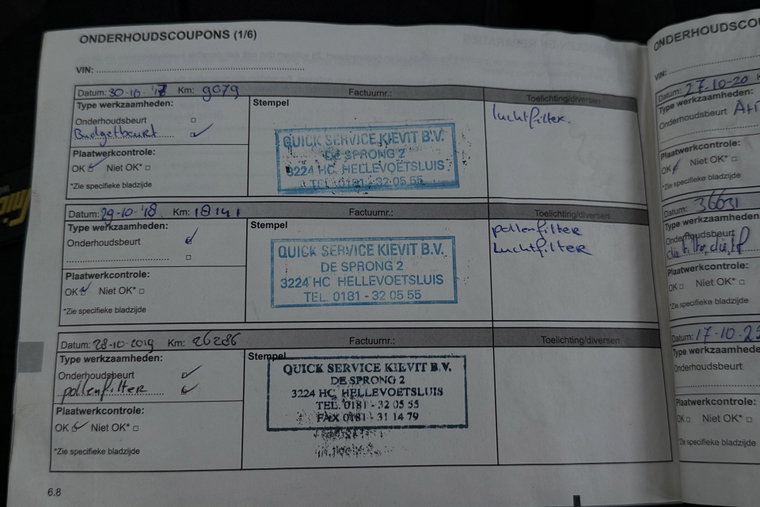 ONDERHOUDSCOUPONS (1/6)
VIN:
Datum: 30-10-'17 Km: 9079 Factuurnr.: Toelichting/diversen
Type werkzaamheden:
Stempel
luchtfilter
Onderhoudsbeurt
Budgetbeurt
Plaatwerkcontrole:
OK Niet OK*
*Zie specifieke bladzijde
QUICK SERVICE KIEVIT B.V.
DE SPRONG 2
3224 HC HELLEVOETSLUIS
TEL. 0181 - 32 05 55
Datum: 29-10-'18 Km: 18141 Factuurnr.: Toelichting/diversen
Type werkzaamheden:
Stempel
pollenfilter
luchtfilter
Onderhoudsbeurt
Plaatwerkcontrole:
OK Niet OK*
*Zie specifieke bladzijde
QUICK SERVICE KIEVIT B.V.
DE SPRONG 2
3224 HC HELLEVOETSLUIS
TEL. 0181 - 32 05 55
Datum: 28-10-2019 Km: 26286 Factuurnr.: Toelichting/diversen
Type werkzaamheden:
Stempel
Onderhoudsbeurt
pollenfilter
Plaatwerkcontrole:
OK Niet OK*
*Zie specifieke bladzijde
QUICK SERVICE KIEVIT B.V.
DE SPRONG 2
3224 HC HELLEVOETSLUIS
TEL. 0181 - 32 05 55
FAX 0181 - 31 14 79
6.8
ONDERHOUDSCOU
VIN:
Datum: 27-10-20
Type werkzaamheden:
Onderhoudsbeurt
Plaatwerkcontrole:
OK Niet OK*
*Zie specifieke bladzijde
Datum: 36631
Type werkzaamheden:
Onderhoudsbeurt
Plaatwerkcontrole:
OK Niet OK*
*Zie specifieke bladzijde
Datum: 17-10-2
Type werkzaamheden
Onderhoudsbeurt
Plaatwerkcontrole:
OK Niet OK*
*Zie specifieke bladzijde